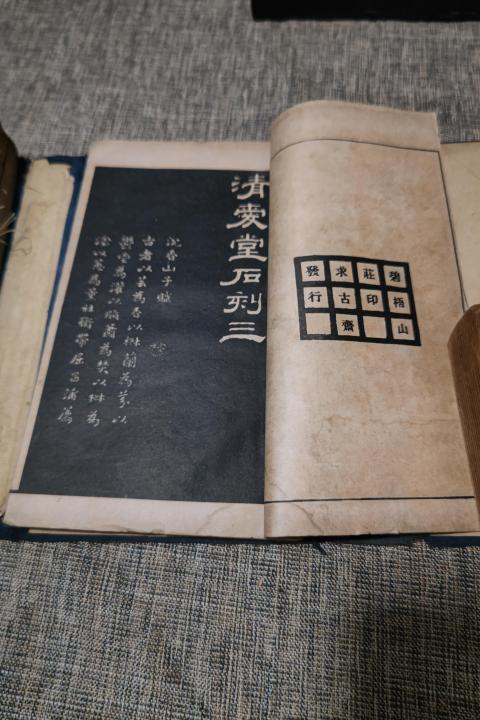 碧梧山
莊印
求古齋
發行
清愛堂石刻三
沉香山子賦
古者以芸為香以椒蘭為芬以
鬱鬯為祼以脂蕭為焚以椒為
涂以蕙為薰杜衡帶屈昌蒲薦